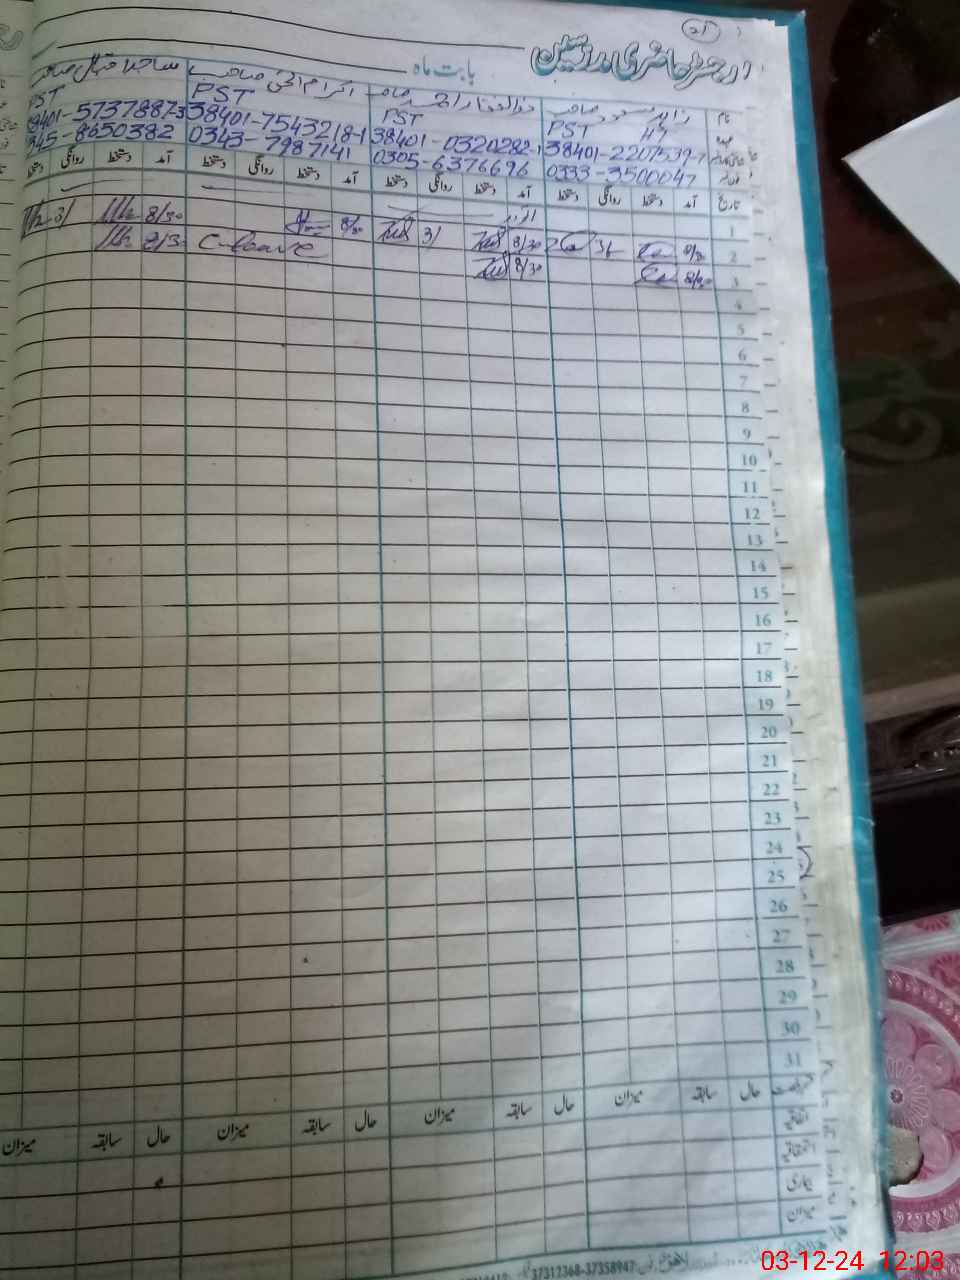 21
رجسٹر حاضری مدرسین
بابت ماہ
نام زاہد مسعود صاحب ذوالفقار احمد صاحب اکرام الحق صاحب ساجد اقبال صاحب
PST H7 PST PST PST
38401-2207539-7 38401-0320282-1 38401-7543218-1 38401-5737887-3
0333-3500047 0305-6376696 0343-7987141 0345-8650382
تاریخ آمد دستخط روانگی دستخط آمد دستخط روانگی دستخط آمد دستخط روانگی دستخط آمد دستخط روانگی دستخط
1 اتوار
2 8/30 8/30 31 8/30 8/30 31
3 8/30 8/30 C-leave 8/30
4
5
6
7
8
9
10
11
12
13
14
15
16
17
18
19
20
21
22
23
24
25
26
27
28
29
30
31
حال سابقہ میزان حال سابقہ میزان حال سابقہ میزان حال سابقہ میزان
اتفاقیہ
استحقاقیہ
بیماری
میزان
37312368-37358947
03-12-24 12:03